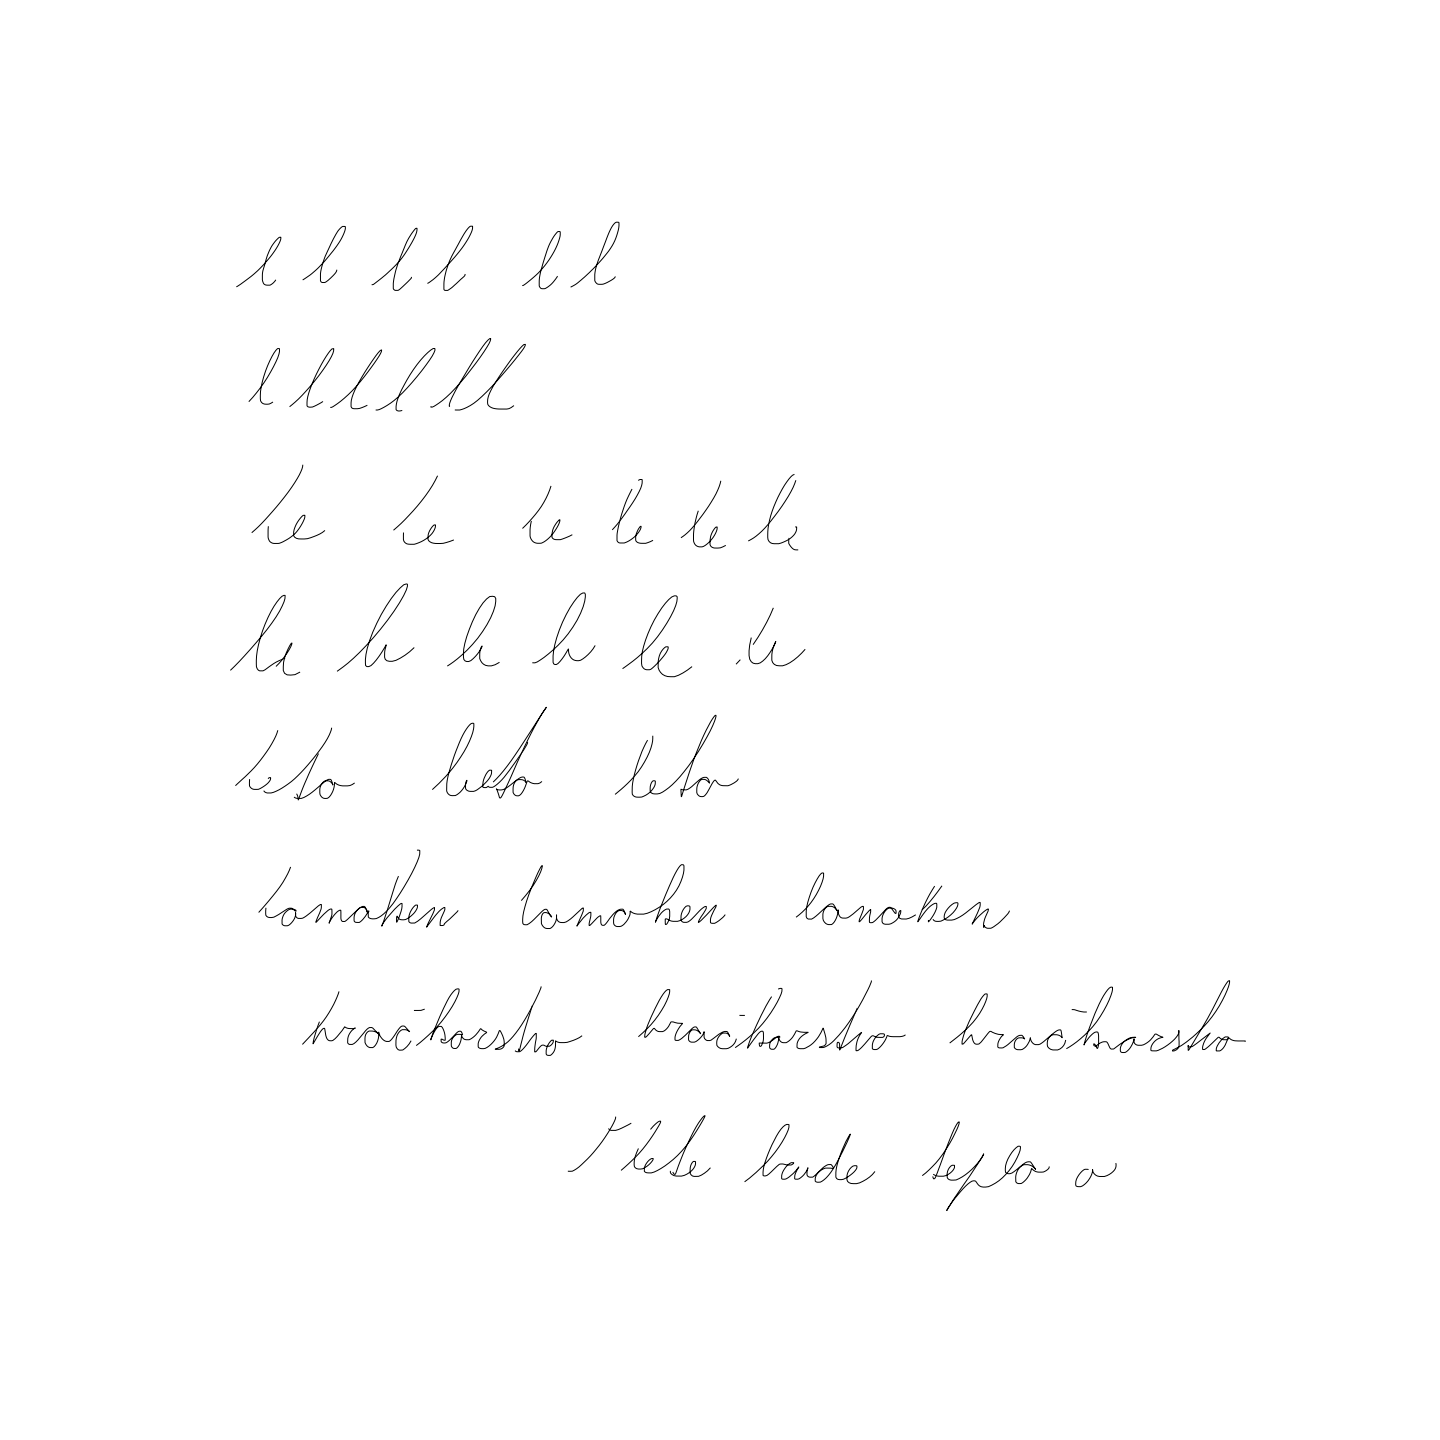 l l l l l l
l l l l l l l
le le le le le le
le le le le le le
leto leto leto
lamoken lamoken lanoken
hračkorstvo hračkorstvo hračkorstvo
V lete bude teplo a